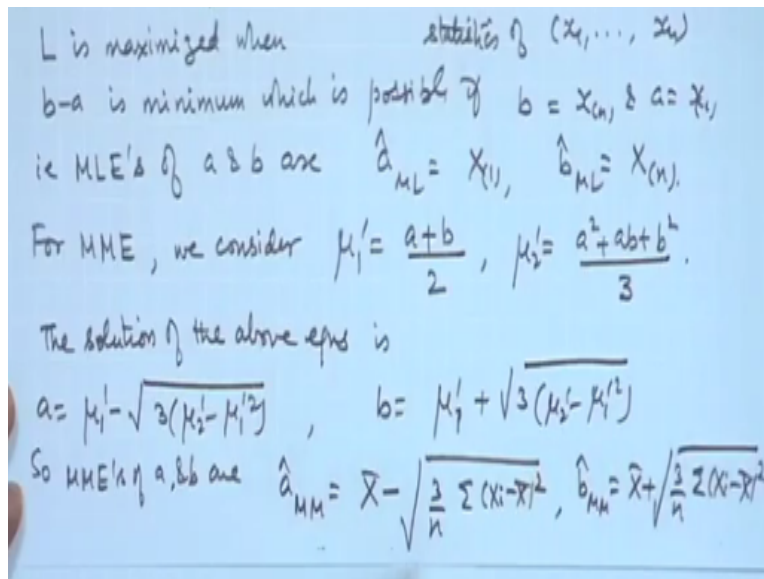 L is maximized when statistics of (x₁, ..., xₙ)
b-a is minimum which is possible if b = x₍ₙ₎, & a = x₍₁₎
ie MLE's of a & b are â_ML = X₍₁₎, b̂_ML = X₍ₙ₎.
For MME, we consider μ₁' = (a+b)/2, μ₂' = (a²+ab+b²)/3.
The solution of the above eqns is
a = μ₁' - √(3(μ₂' - μ₁'²)), b = μ₁' + √(3(μ₂' - μ₁'²))
So MME's of a, & b are â_MM = X̄ - √(3/n Σ(Xi-X̄)²), b̂_MM = X̄ + √(3/n Σ(Xi-X̄)²)